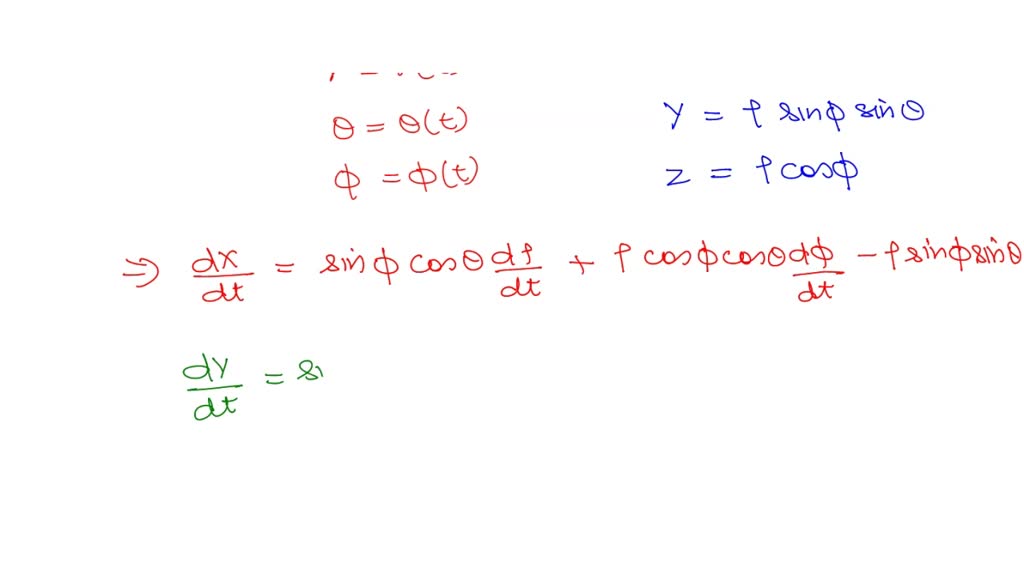 θ = θ(t)
y = ρ sinφ sinθ
φ = φ(t)
z = ρ cosφ
⇒ dx/dt = sinφ cosθ dρ/dt + ρ cosφ cosθ dφ/dt − ρ sinφ sinθ
dy/dt = si